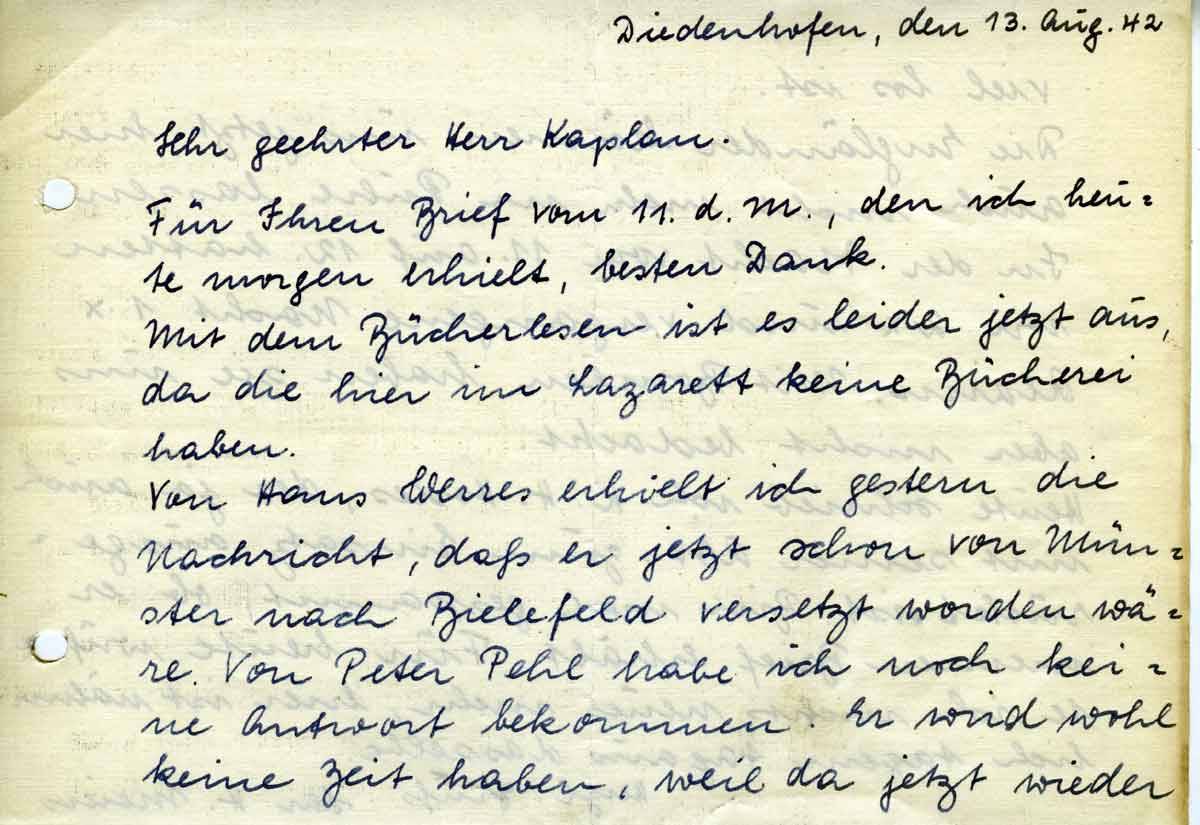 Diedenhofen, den 13. Aug. 42
Sehr geehrter Herr Kaplan.
Für Ihren Brief vom 11. d. M., den ich heu=
te morgen erhielt, besten Dank.
Mit dem Bücherlesen ist es leider jetzt aus,
da die hier im Lazarett keine Bücherei
haben.
Von Hans Werres erhielt ich gestern die
Nachricht, daß er jetzt schon von Mün=
ster nach Bielefeld versetzt worden wä=
re. Von Peter Pehl habe ich noch kei=
ne Antwort bekommen. Er wird wohl
keine Zeit haben, weil da jetzt wieder